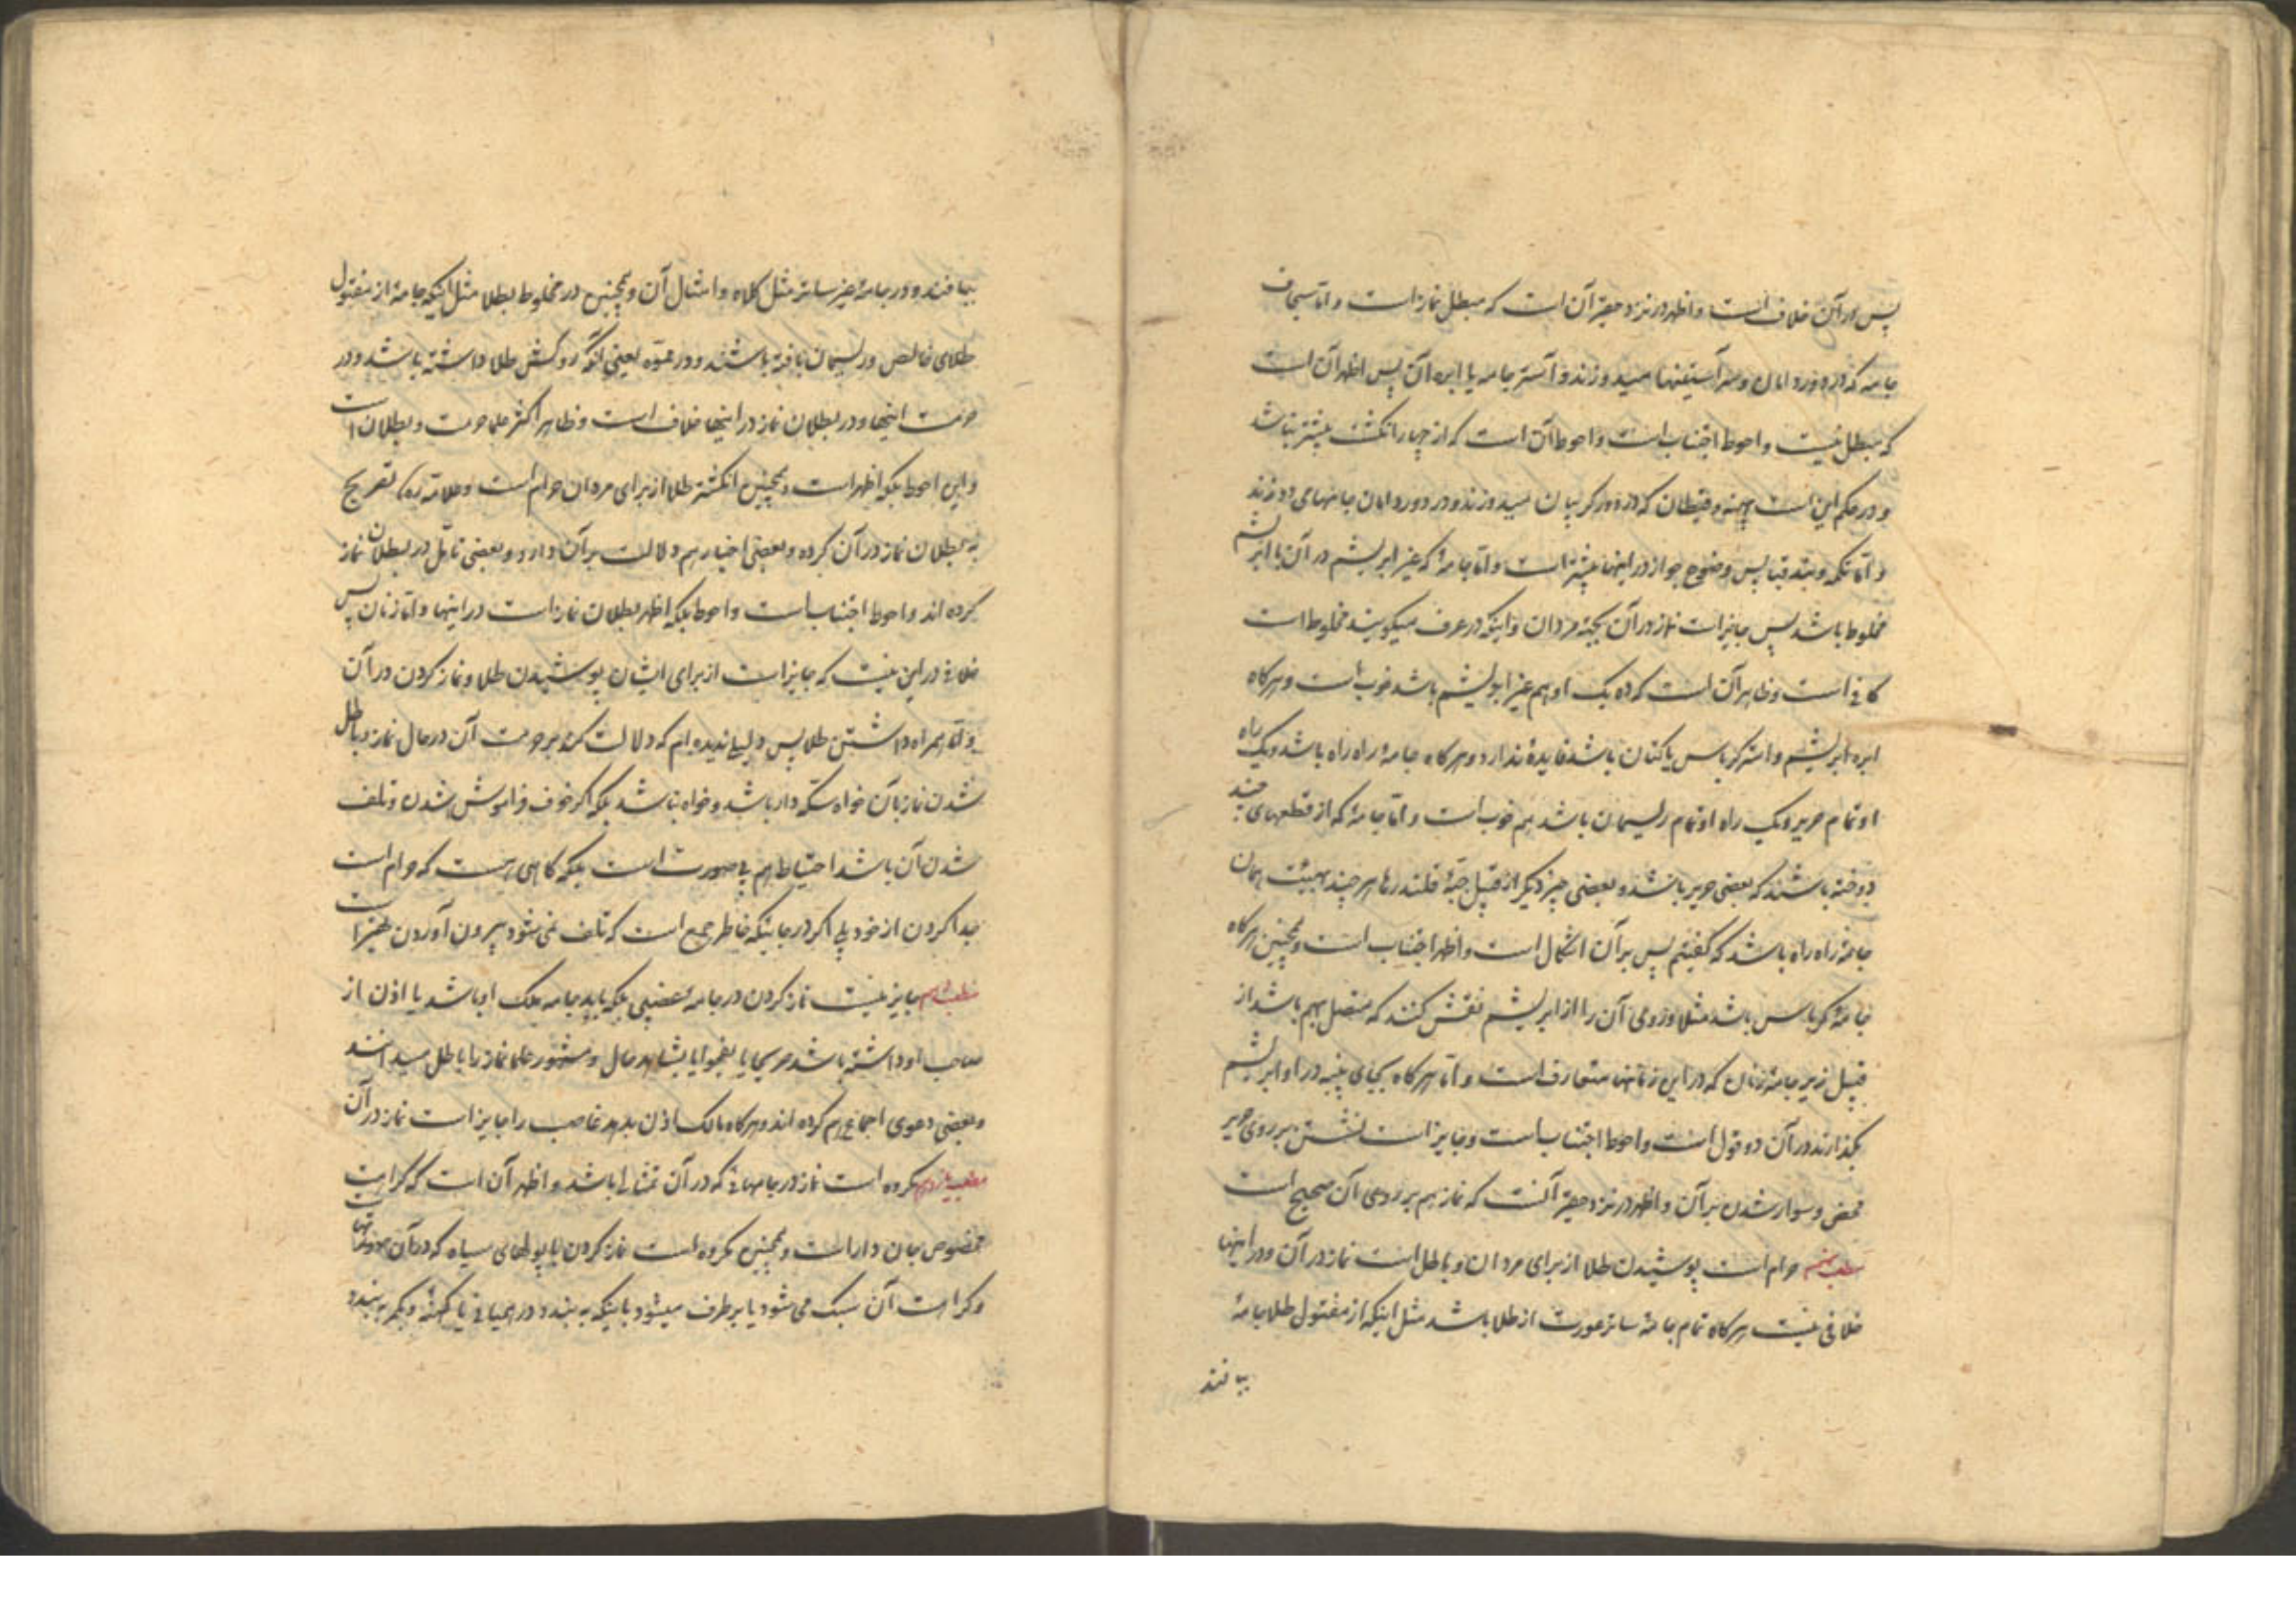 پس در آن خلاف است و اظهر در نزد حقیر آن است که مبطل نماز است و اما سجاف
جامه که در دور دامان و سر آستینها میدوزند و آستر جامه یا ابره آن پس اظهر آن است
که مبطل نیست و احوط اجتناب است و احوط آن است که از چهار انگشت بیشتر نباشد
و در حکم این است و قیطان که در دور کریبان میدوزند و در دور دامان جامهها می دوزند
و اما تکمه و بند قبا پس وضوح جواز در اینها بیشتر است و اما جامهٔ که غیر ابریشم در آن با ابریشم
مخلوط باشد پس جایز است نماز در آن بجهة مردان و اینکه در عرف میکویند مخلوط است
کافی است و ظاهر آن است که ده یک او هم غیر ابریشم باشد خوب است و هرکاه
ابره ابریشم و استر کرباس یا کتان باشد فایدهٔ ندارد و هرکاه جامهٔ راه راه باشد و یک راه
او تمام حریر و یک راه او تمام ریسمان باشد هم خوب است و اما جامهٔ که از قطعهای چند
دوخته باشند که بعضی حریر باشد و بعضی چیز دیکر از قبیل جبّهٔ قلندرها هر چند بهیئت همان
جامهٔ راه راه باشد که کفتیم پس بر آن اشکال است و اظهر اجتناب است و همچنین هرکاه
جامهٔ کرباس باشد مثلا و روی آن را از ابریشم نقش کنند که متصل بهم باشد از
قبیل زیر جامهٔ زنان که در این زمانها متعارف است و اما هرکاه بجای پنبه در او ابریشم
بکذارند در آن دو قول است و احوط اجتناب است و جایز است نشستن بر روی حریر
محض و سوار شدن بر آن و اظهر در نزد حقیر آنست که نماز هم بر روی آن صحیح است
مطلب حرام است پوشیدن طلا از برای مردان و باطل است نماز در آن و در اینها
خلافی نیست هرکاه تمام جامهٔ ساتر عورت از طلا باشد مثل اینکه از مفتول طلا جامهٔ
ببافند
ببافند و در جامهٔ غیر ساتر مثل کلاه و امثال آن و همچنین در مخلوط بطلا مثل اینکه جامهٔ از مفتول
طلای خالص و ریسمان بافته باشند و در مموّه یعنی آنکه روکش طلا داشته باشد و در
حرمت اینها و در بطلان نماز در اینها خلاف است و ظاهر اکثر علما حرمت و بطلان است
و این احوط بلکه اظهر است و همچنین انکشتر طلا از برای مردان حرام است و علامه ره تصریح
به بطلان نماز در آن کرده و بعضی اخبار هم دلالت بر آن دارد و بعضی تامّل در بطلان نماز
کرده اند و احوط اجتناب است و احوط بلکه اظهر بطلان نماز است در اینها و اما زنان پس
خلافی در این نیست که جایز است از برای ایشان پوشیدن طلا و نماز کردن در آن
و اما همراه داشتن طلا پس دلیلی ندیده ام که دلالت کند بر حرمت آن در حال نماز و باطل
شدن نماز بآن خواه سکه دار باشد و خواه نباشد بلکه اکر خوف فراموش شدن و تلف
شدن آن باشد احتیاط هم بی صورت است بلکه کاهی هست که حرام است
جدا کردن از خود بلی اکر در جائیکه خاطر جمع است که تلف نمی شود بیرون آوردن بهتر است
مطلب دهم جایز نیست نماز کردن در جامه غصبی بلکه باید جامه ملک او باشد یا اذن از
صاحب او داشته باشد صریحا یا بفحوا یا بشاهد حال و مشهور علما نماز را باطل میدانند
و بعضی دعوی اجماع هم کرده اند و هرکاه مالک اذن بدهد غاصب را جایز است نماز در آن
مطلب یازدهم مکروه است نماز در جامهائی که در آن تمثالها باشد و اظهر آن است که کراهت
مخصوص جان دار است و همچنین مکروه است نماز کردن با پولهای سیاه که در آن صورتهاست
و کراهت آن سبک می شود یا بر طرف میشود باینکه به بندد در همیانی یا کهنهٔ و بکمر به بندد